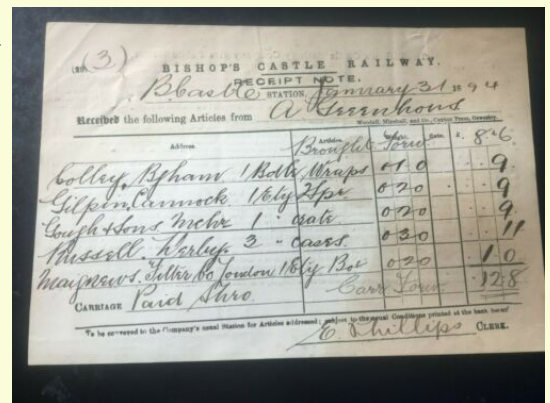 (3)
BISHOP'S CASTLE RAILWAY.
RECEIPT NOTE.
B Castle STATION, January 31 1894
Received the following Articles from A Greenhous
Woodall, Minshall, and Co., Caxton Press, Oswestry.
Address Articles Weight Rate. £. 8.6
Brought Forw
Colley, Bgham 1 Bdle Wraps 0 1 0 9
Gilpin, Cannock 1 Ety Hpr 0 2 0 9
Gough & Sons Mchr 1 " crate 0 2 0 9
Russell Derby 3 " cases. 0 3 0 11
Maignews. Filter Co London 1 Ety Box 0 2 0 1 0
CARRIAGE Paid Thro. Carr Forw 12 8
To be conveyed to the Company's usual Station for Articles addressed; subject to the usual Conditions printed at the back hereof
E. Phillips CLERK.